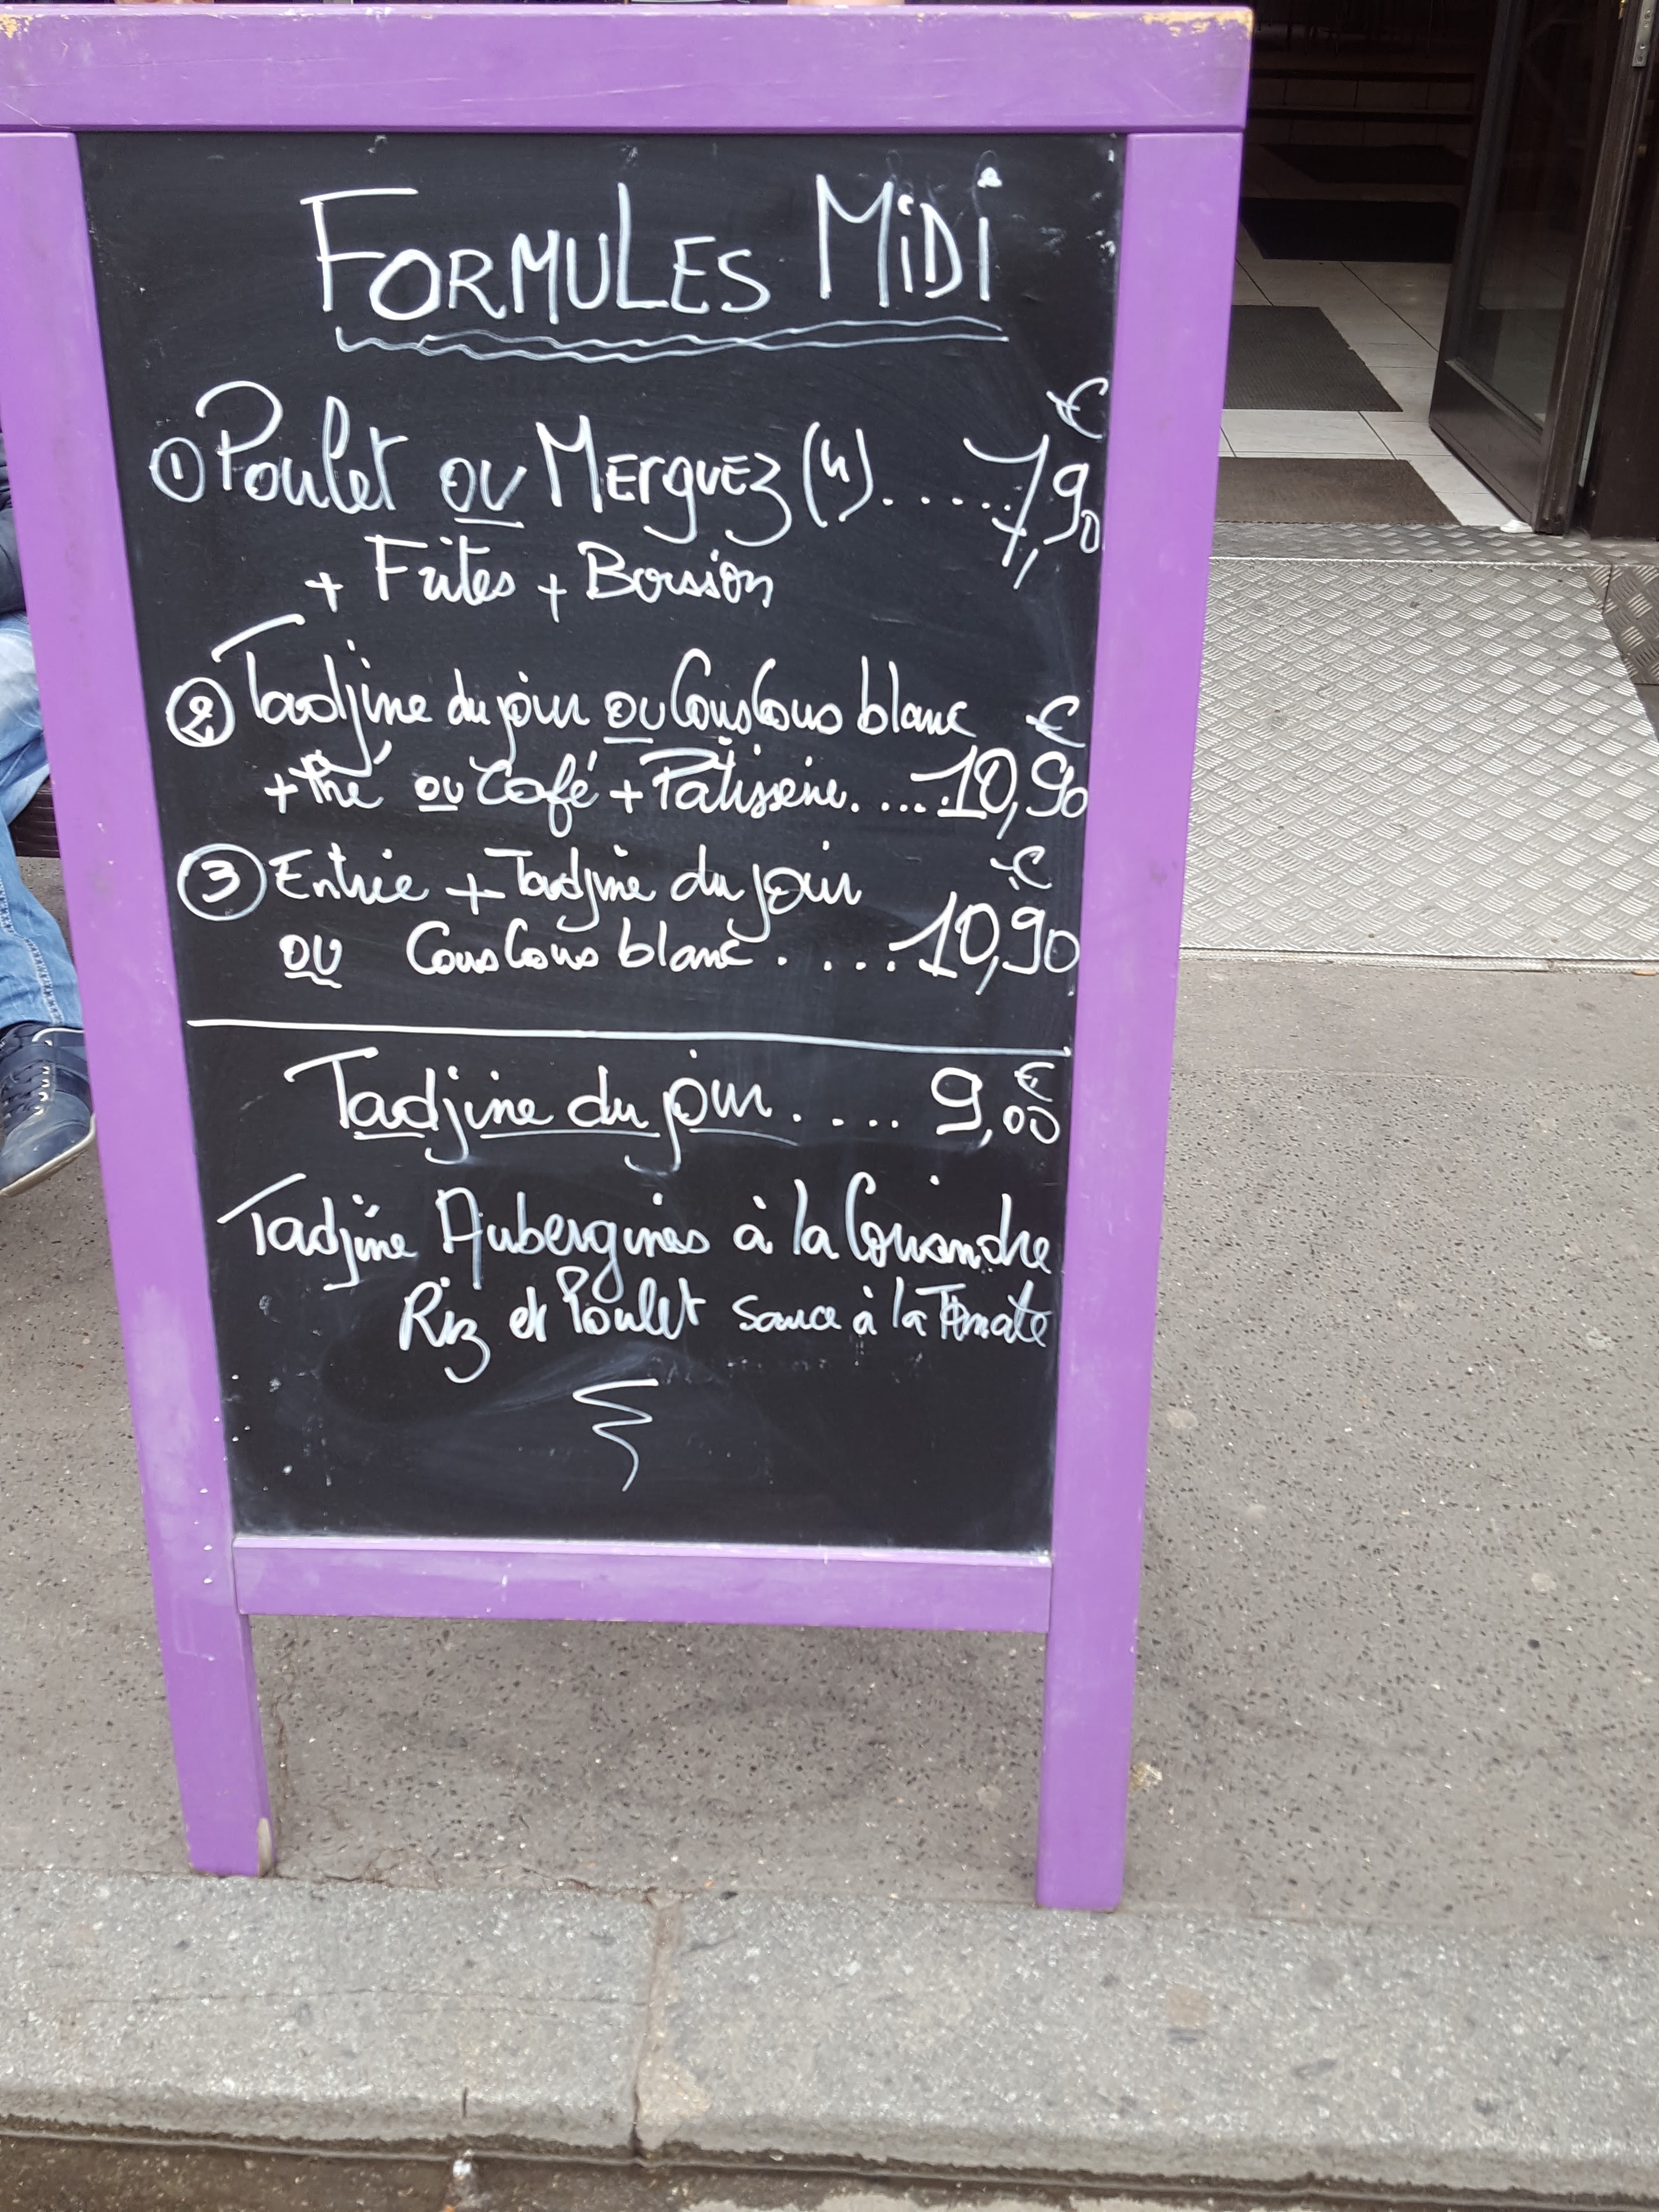 FORMULES MiDi
① Poulet ou MERGUEZ (4)..... 7,90 €
+ Frites + Boisson
② Tadjine du jour ou CousCous blanc €
+ thé ou Café + Pâtisserie..... 10,90
③ Entrée + Tadjine du jour €
ou CousCous blanc..... 10,90
Tadjine du jour.... 9,00 €
Tadjine Aubergines à la Coriandre
Riz et Poulet sauce à la Tomate